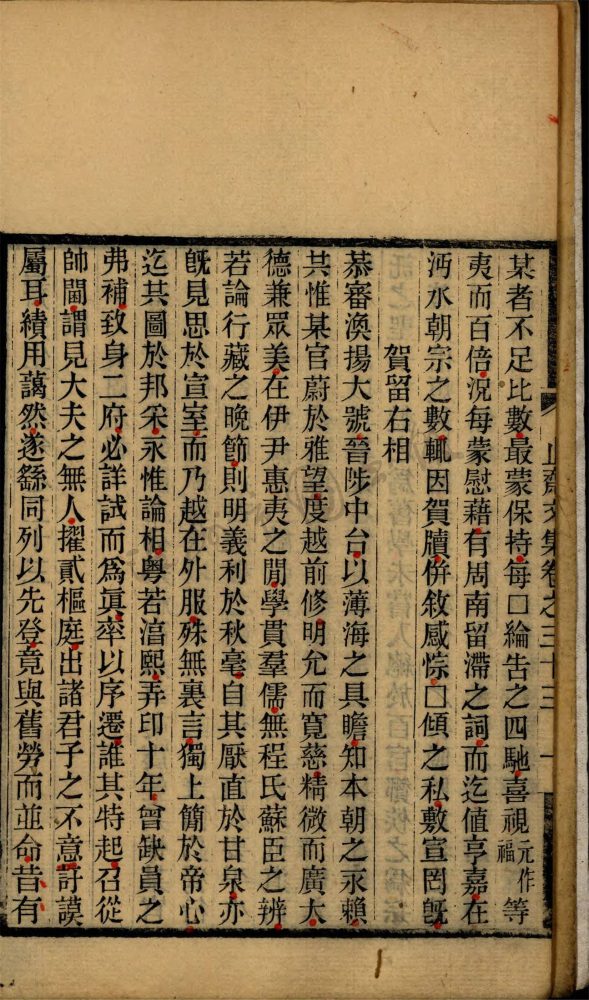 某者不足比數最蒙保持每囗綸告之四馳喜視元作福等
夷而百倍況每蒙慰藉有周南留滯之詞而迄値亨嘉在
沔水朝宗之數輒因賀牘倂敘感悰囗傾之私敷宣罔旣
賀留右相
恭審渙揚大號晉陟中台以薄海之具瞻知本朝之永賴
共惟某官蔚於雅望度越前修明允而寬慈精微而廣大
德兼眾美在伊尹惠夷之閒學貫羣儒無程氏蘇臣之辨
若論行藏之晚節則明義利於秋毫自其厭直於甘泉亦
旣見思於宣室而乃越在外服殊無裏言獨上簡於帝心
迄其圖於邦采永惟論相粤若湻熙弄印十年曾缺員之
弗補致身二府必詳試而爲眞率以序遷誰其特起召從
帥閫謂見大夫之無人擢貳樞庭出諸君子之不意訏謨
屬耳績用藹然遂繇同列以先登竟與舊勞而並命昔有
止齋文集卷之三十三 一